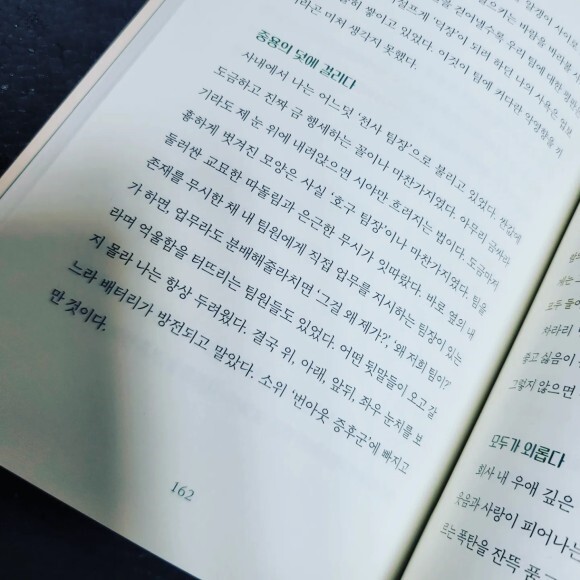 실프게 '덕장'이 되려 하던 나의 사욕은 업보
히 쌓이고 있었다. 이것이 팀에 커다란 악영향을 끼
리라곤 미처 생각지 못했다.
중용의 덫에 걸리다
사내에서 나는 어느덧 '천사 팀장'으로 불리고 있었다. 깡통에
도금하고 진짜 금 행세하는 꼴이나 마찬가지였다. 아무리 금싸라
기라도 제 눈 위에 내려앉으면 시야만 흐려지는 법이다. 도금마저
흉하게 벗겨진 모양은 사실 '호구 팀장'이나 마찬가지였다. 팀을
둘러싼 교묘한 따돌림과 은근한 무시가 잇따랐다. 바로 옆의 내
존재를 무시한 채 내 팀원에게 직접 업무를 지시하는 팀장이 있는
가 하면, 업무라도 분배해줄라치면 '그걸 왜 제가?', '왜 저희 팀이?'
라며 억울함을 터뜨리는 팀원들도 있었다. 어떤 뒷말들이 오고 갈
지 몰라 나는 항상 두려웠다. 결국 위, 아래, 앞뒤, 좌우 눈치를 보
느라 배터리가 방전되고 말았다. 소위 '번아웃 증후군'에 빠지고
만 것이다.
162
차라리
좋고 싫음이
그렇지 않으면
모두가 외롭다
회사 내 우애 깊은
웃음과 사랑이 피어나는
르는 폭탄을 잔뜩 품